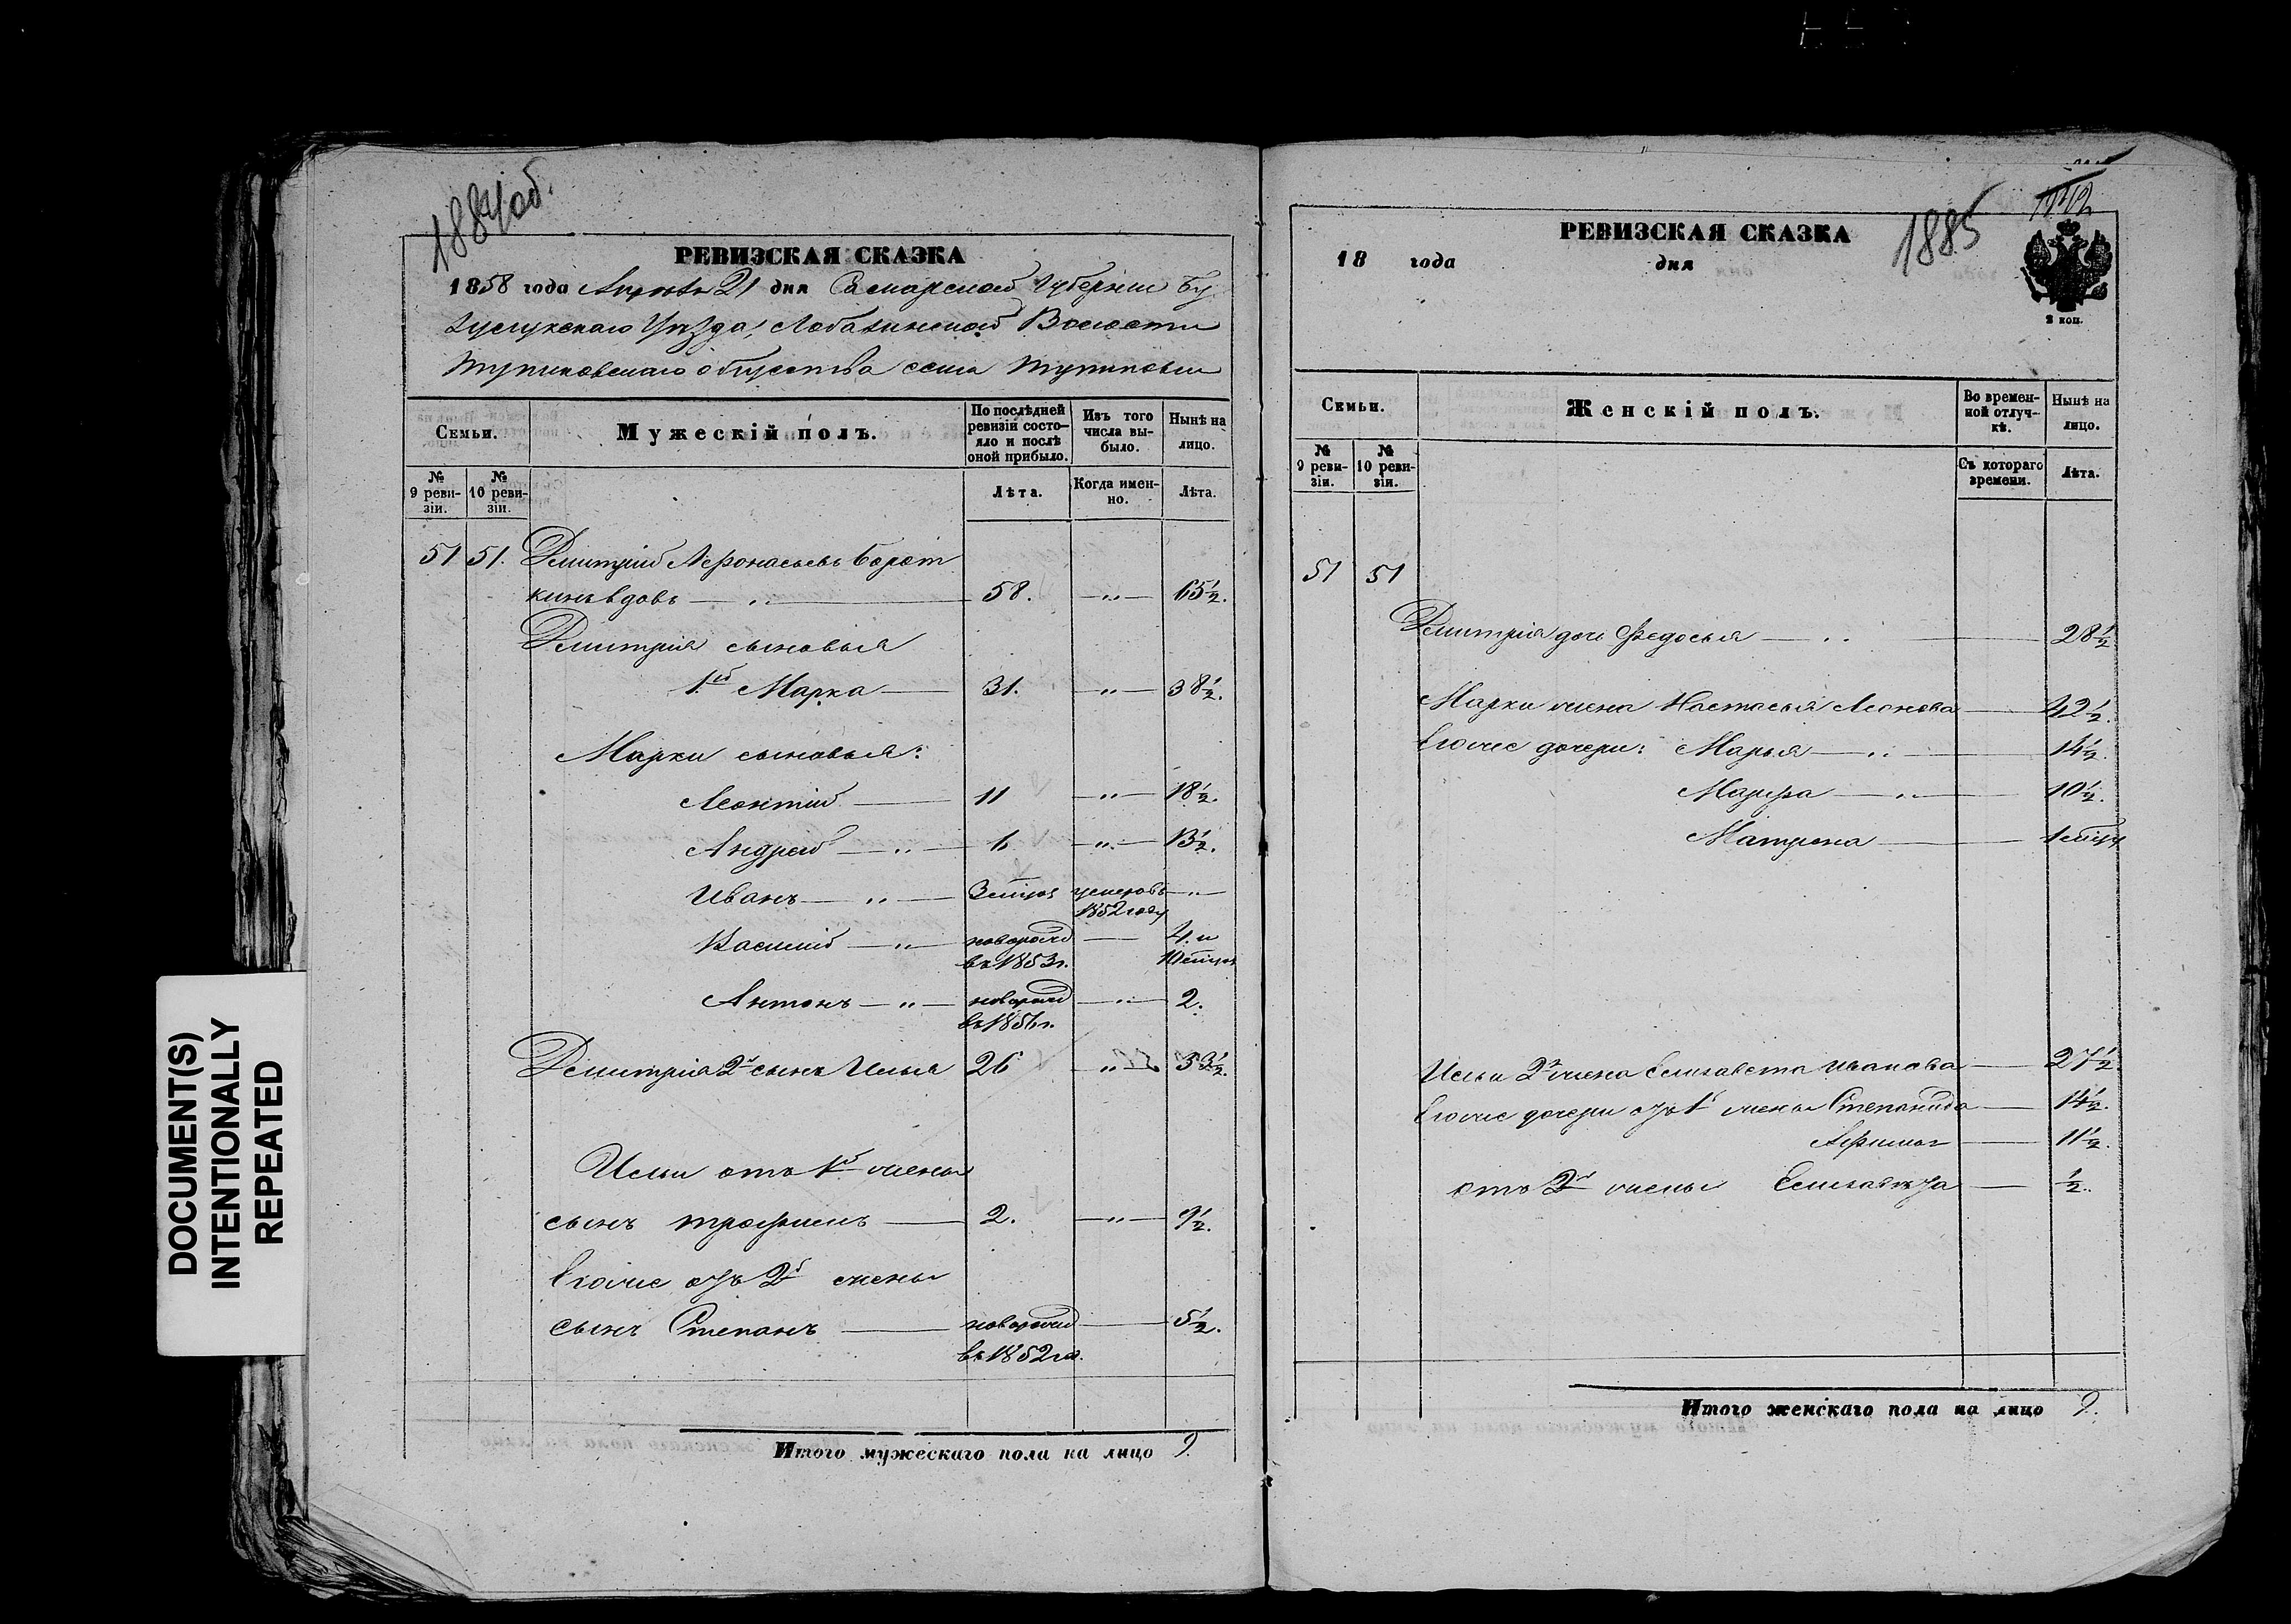 DOCUMENT(S)
INTENTIONALLY
REPEATED
1884 об.
РЕВИЗСКАЯ СКАЗКА
1858 года Апреля 21 дня Самарской Губернии Бу
зулукскаго Уѣзда, Лобазинской Волости
общества села
Семьи.
Мужескій полъ.
По послѣдней ревизіи состояло и послѣ оной прибыло.
Изъ того числа выбыло.
Нынѣ на лицо.
№ 9 ревизіи.
№ 10 ревизіи.
Лѣта.
Когда именно.
Лѣта.
51 51. Дмитрій Афонасьевъ Борот
кинъ вдовъ — „ — 58. — „ — 65½.
Дмитрія сыновья
1й Марка — 31. — „ — 38½.
Марки сыновья:
Леонтій — 11 — „ — 18½.
Андрей — „ — 6 — „ — 13½.
Иванъ — „ — 3 умеръ въ — „ —
1852 году
Василій — „ — новорожд — 4. и
въ 1853г. 10
Антонъ — „ — новорожд — „ — 2.
въ 1856г.
Дмитрія 2й сынъ Илья 26 — „ 33½.
Ильи отъ 1й жены
сынъ Трофимъ — 2. — „ — 9½.
Егоже отъ 2й жены
сынъ Степанъ — новорожд — 5½.
въ 1852го.
Итого мужескаго пола на лицо 9.
1885
РЕВИЗСКАЯ СКАЗКА
18 года дня
2 коп.
Семьи.
Женскій полъ.
Во временной отлучкѣ.
Нынѣ на лицо.
№ 9 ревизіи.
№ 10 ревизіи.
Съ котораго времени.
Лѣта.
51 51
Дмитрія дочь Федосья — „ — 28½
Марки жена Настасья Леонова — 42½.
Егоже дочери: Марья — „ — 14½.
Марфа — „ — 10½.
Матрена — 1
Ильи 2я жена Елизавета Иванова — 27½
Егоже дочери отъ 1й жены Степанида — 14½.
Афимья — 11½.
отъ 2й жены Елизавета — ½.
Итого женскаго пола на лицо 9.